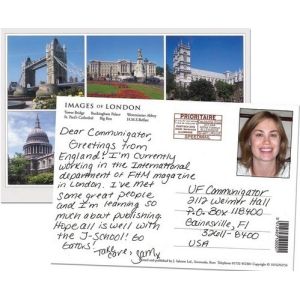 IMAGES OF LONDON
Tower Bridge Buckingham Palace Westminster Abbey
St. Paul's Cathedral Big Ben H.M.S. Belfast
PRIORITAIRE
Dear Communigator,
Greetings from
England! I'm currently
working in the International
department of FHM magazine
in London. I've met
some great people
and I'm learning so
much about publishing.
Hope all is well with
the J-School! Go
Gators!
Take care,
UF Communigator
2112 Weimer Hall
P.O. Box 118400
Gainesville, Fl
32611-8400
USA